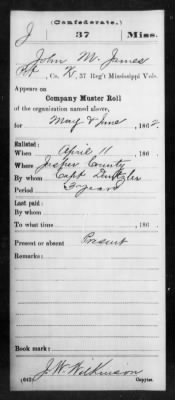 (Confederate.)
J 37 Miss.
John M. James
Pvt, Co. K, 37 Reg't Mississippi Vols.
Appears on
Company Muster Roll
of the organization named above,
for May & June, 1862.
Enlisted:
When April 11, 186
Where Jasper County
By whom Capt
Period 3 years
Last paid:
By whom
To what time , 186
Present or absent Present
Remarks:
Book mark:
J. W. Wilkinson
(642) Copyist.